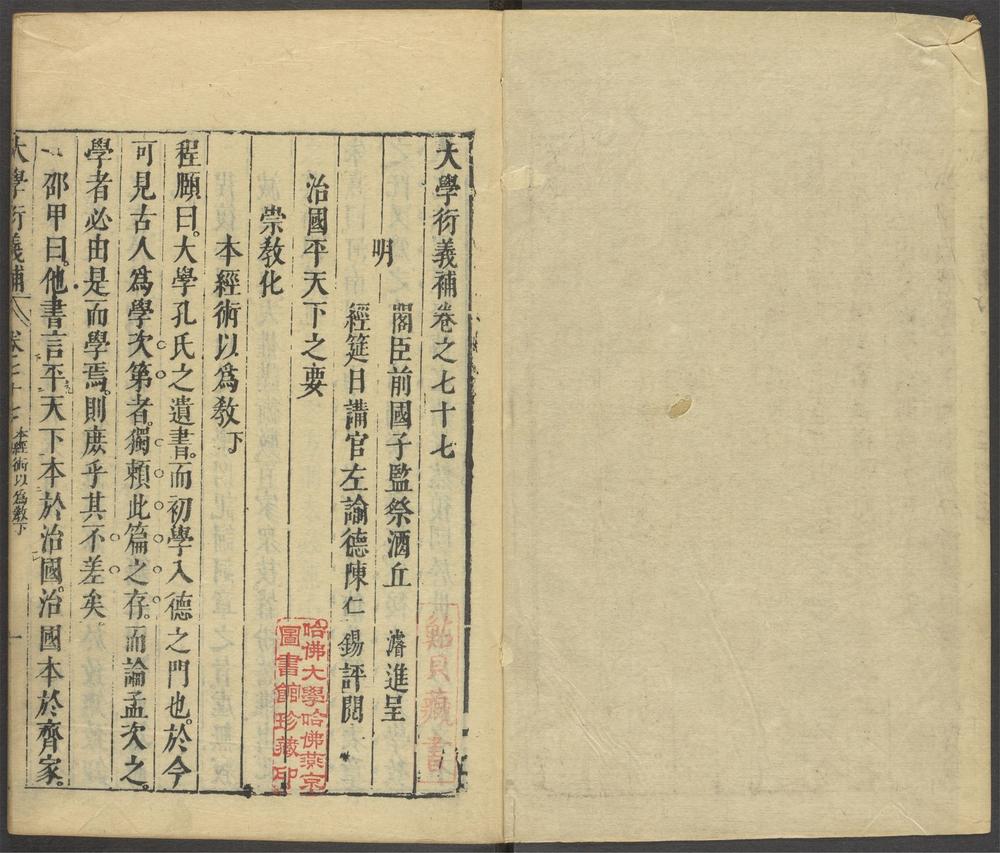 大學衍義補卷之七十七
明
閣臣前國子監祭酒丘　濬進呈
經筵日講官左諭德陳仁錫評閱
治國平天下之要
崇敎化
本經術以爲敎下
程頤曰。大學孔氏之遺書。而初學入德之門也。於今
可見古人爲學次第者。獨賴此篇之存。而論孟次之。
學者必由是而學焉。則庶乎其不差矣
邵甲曰。他書言平天下本於治國。治國本於齊家。
大學衍義補　卷七十七　本經術以爲敎下　一
哈佛大學哈佛燕京
圖書館珍藏印
藏書